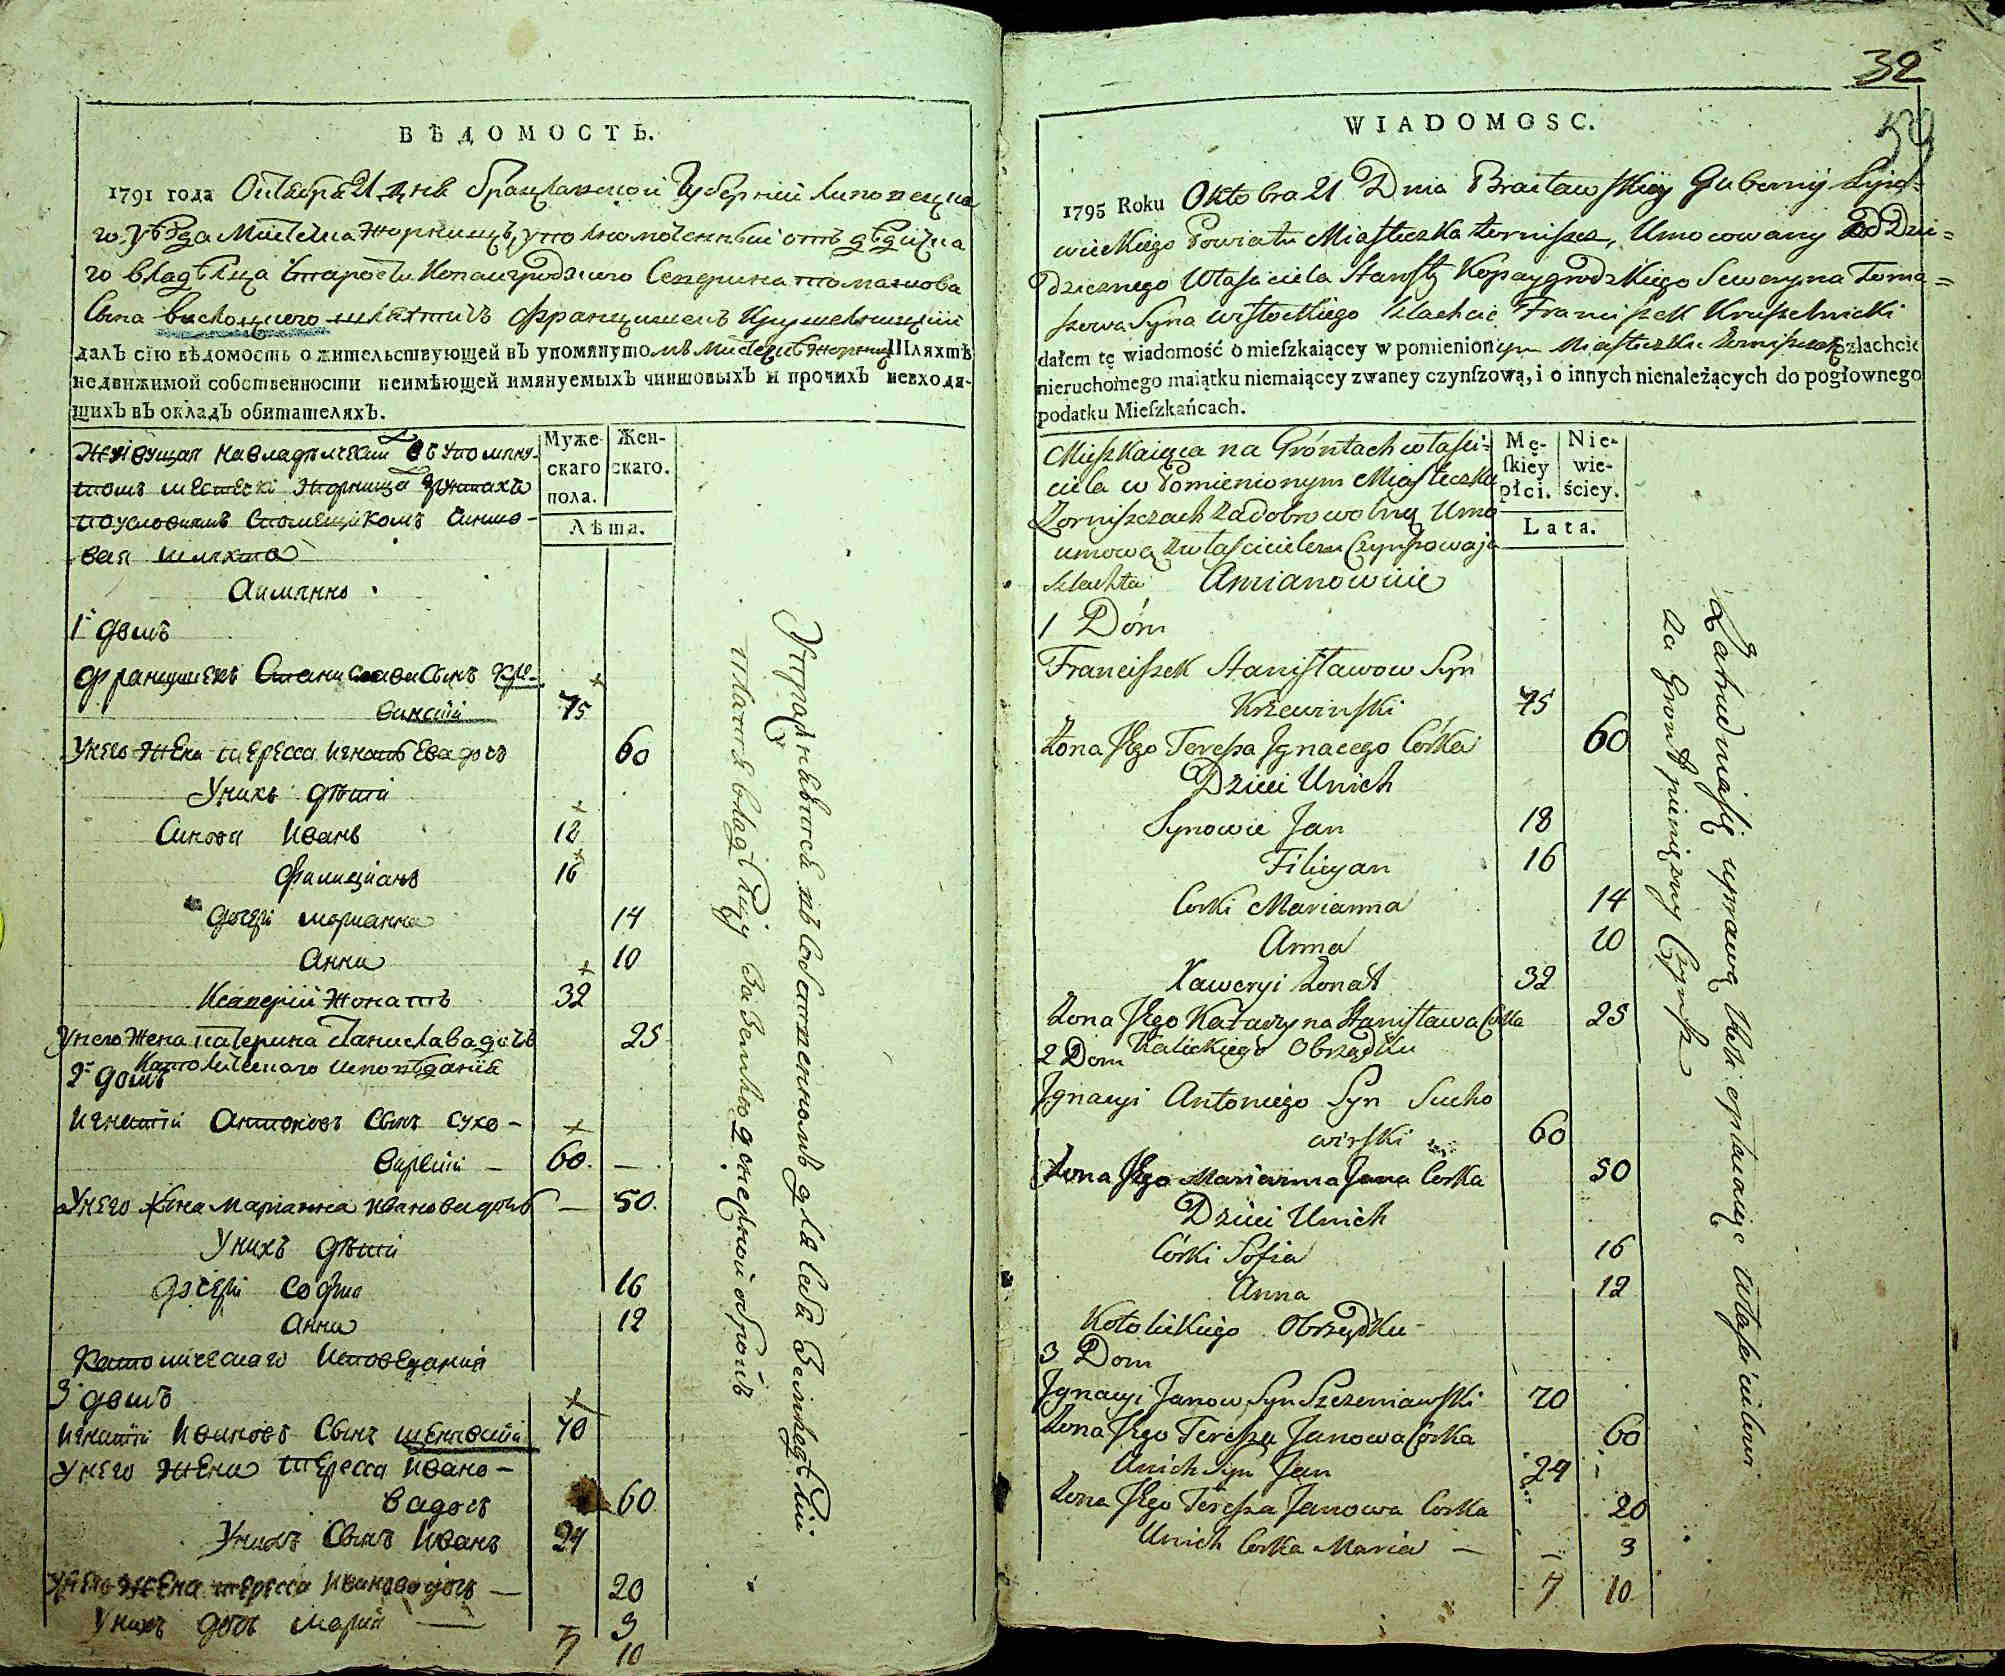 ВѢДОМОСТЬ.
1791 года Октября 21 дня Брацлавской Губерніи Липовецка
го уѣзда Мистечка Жорнищъ, уполномоченный отъ дѣдична
го владѣлца Старосты Копайгродзкого Северина Томашова
Сына Вислоцкого шляхтичъ Францишекъ Крушелницкій
далъ сію вѣдомость о жительствующей въ упомянутомъ Мистечкѣ Жорнищ Шляхтѣ
недвижимой собственности неимѣющей имянуемыхъ чиншовыхъ и прочихъ невходя-
щихъ въ окладъ обитателяхъ.
Мужескаго пола.
Женскаго.
Лѣта.
Живущая на владѣлческих въ упомяну-
томъ местечкѣ Жорнища грунтахъ
по условиямъ с помещикомъ чиншо-
вая шляхта
А имянно
1й домъ
Францишекъ Станиславовъ Сынъ Крже-
винский 75
У него жена Тересса Игнатьева дочь 60
У нихъ дѣти
Синовя Иванъ 18
Филициянъ 16
дочери Марианна 14
Анна 10
Ксаверій Жонатъ 32
У него жена Катерина Станислава дочь 25
Католическаго исповѣдания
2й домъ
Игнатий Антоновъ Сынъ Сухо-
вирский — 60. —
У него жена Марианна Иванова дочь — 50.
У нихъ дѣти
дочери София 16
Анна 12
Католическаго Исповеданий
3й домъ
Игнатий Ивановъ Сынъ 70
У него жена Тересса Ивано-
ва дочь 60
У нихъ Сынъ Иванъ 24
У него жена Тересса Иванова дочь — 20
У нихъ дочь Мария — 3
7 10
Упражняются въ собственномъ для себя земледѣлии
платя владѣлцу за землю денежной оброкъ
32
59
WIADOMOSC.
1795 Roku Oktobra 21 Dnia Bracławskiey Gubernij Lipo-
wieckiego Powiatu Miasteczka Żorniszcz, Umocowany od Dzie=
dzicznego Własciciela Starosty Kopaygrodzkiego Seweryna Toma=
szowa Syna Wisłockiego Szlachcic Franciszek Kruszelnicki
dałem tę wiadomość o mieſzkaiącey w pomienionym Miasteczku Żorniszczach Szlachcie
nieruchomego maiątku niemaiącey zwaney czynſzową, i o innych nienależących do pogłownego
podatku Mieſzkańcach.
Męſkiey płci.
Niewieściey.
Lata.
Mieszkaiąca na Gróntach własci-
ciela w Pomienionym Miasteczku
Żorniszczach za dobrowolną Umo
umową z włascicielem Czynszowaja
szlachta Amianowicie
1 Dóm
Franciszek Stanisławow Syn
Krzewinski 75
Żona Jego Teressa Ignacego Córka 60
Dzieci Unich
Synowie Jan 18
Filicyan 16
Corki Marianna 14
Anna 10
Xawery Żonat 32
Żona Jego Katarzyna Stanisława Corka 25
Katolickiego Obrządku
2 Dom
Ignacyi Antoniego Syn Sucho
wirski 60
Żona Jego Marianna Jana Corka 50
Dzieci Unich
Córki Sofia 16
Anna 12
Kotolickiego Obrządku
3 Dom
Ignacyi Janow Syn Szczeniawski 70
Żona Jego Teressa Janowa Corka 60
Unich Syn Jan 24
Żona Jego Teressa Janowa Corka 20
Unich Corka Maria — — 3
7 10
Zatrudniasię uprawą Roli opłacaiąc Włascicielowi
za Gront pieniężny Czynsz